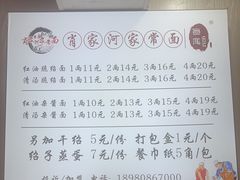 肖家河家常面
红油脆绍面 1两11元 2两14元 3两16元 4两20元
清汤脆绍面 1两11元 2两14元 3两16元 4两20元
红油杂酱面 1两10元 2两13元 3两15元 4两19元
清汤杂酱面 1两10元 2两13元 3两15元 4两19元
另加干绍 5元/份 打包盒1元/个
绍子蒸蛋 7元/份 餐巾纸5角/包
18980867000